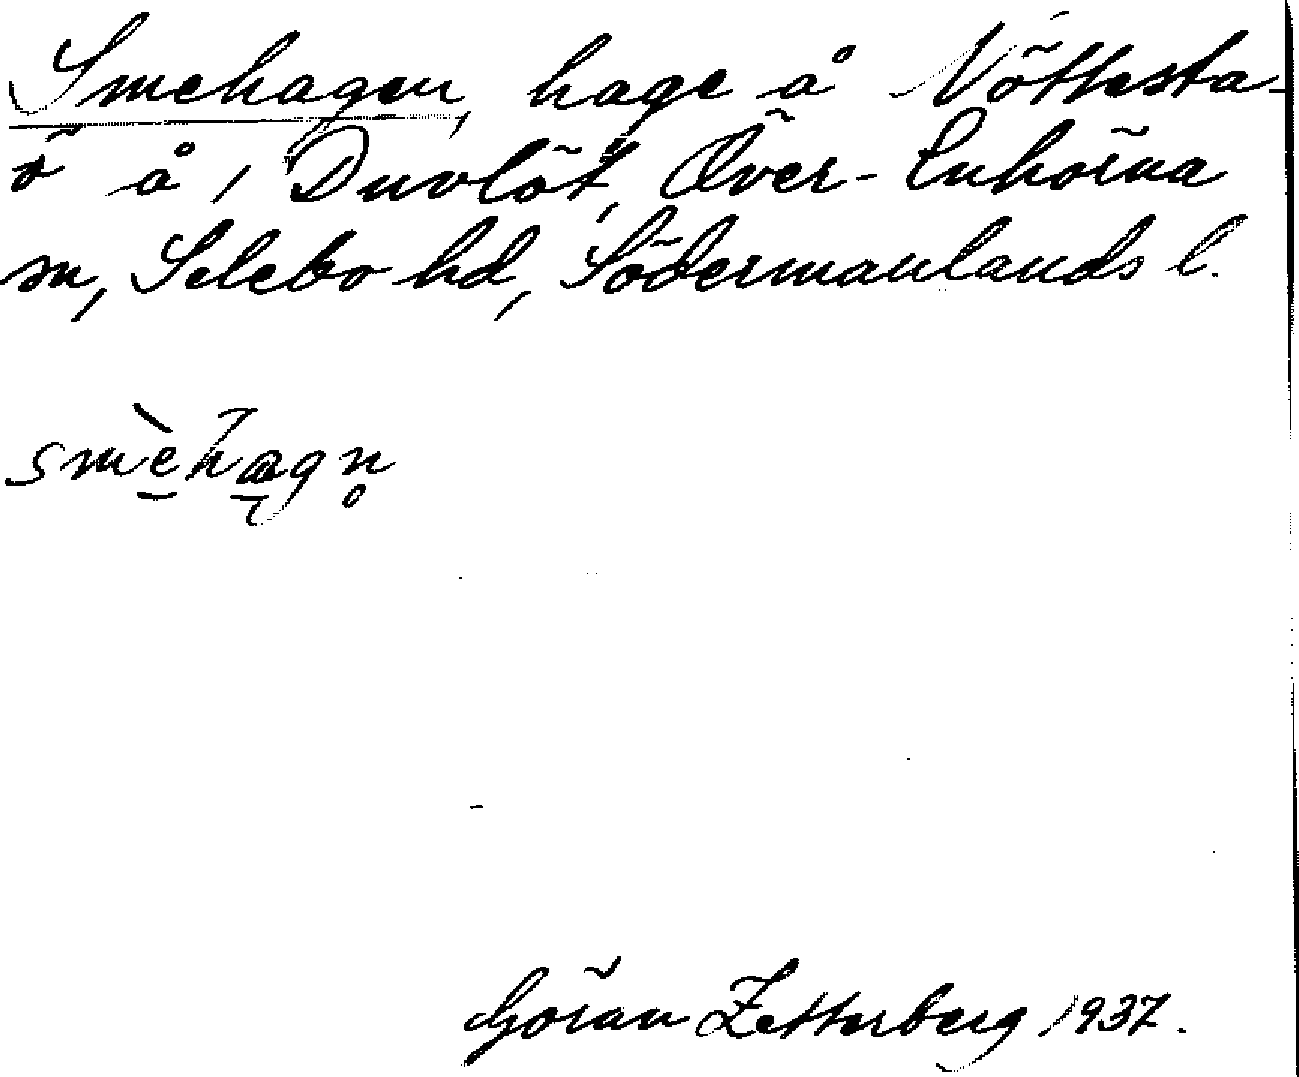 Smehagen, hage å Nöttesta-
ö å, Duvlöt, Över-Enhörna
sn, Selebo hd, Södermanlands l.
smèhagn̥
Göran Zetterberg 1937.